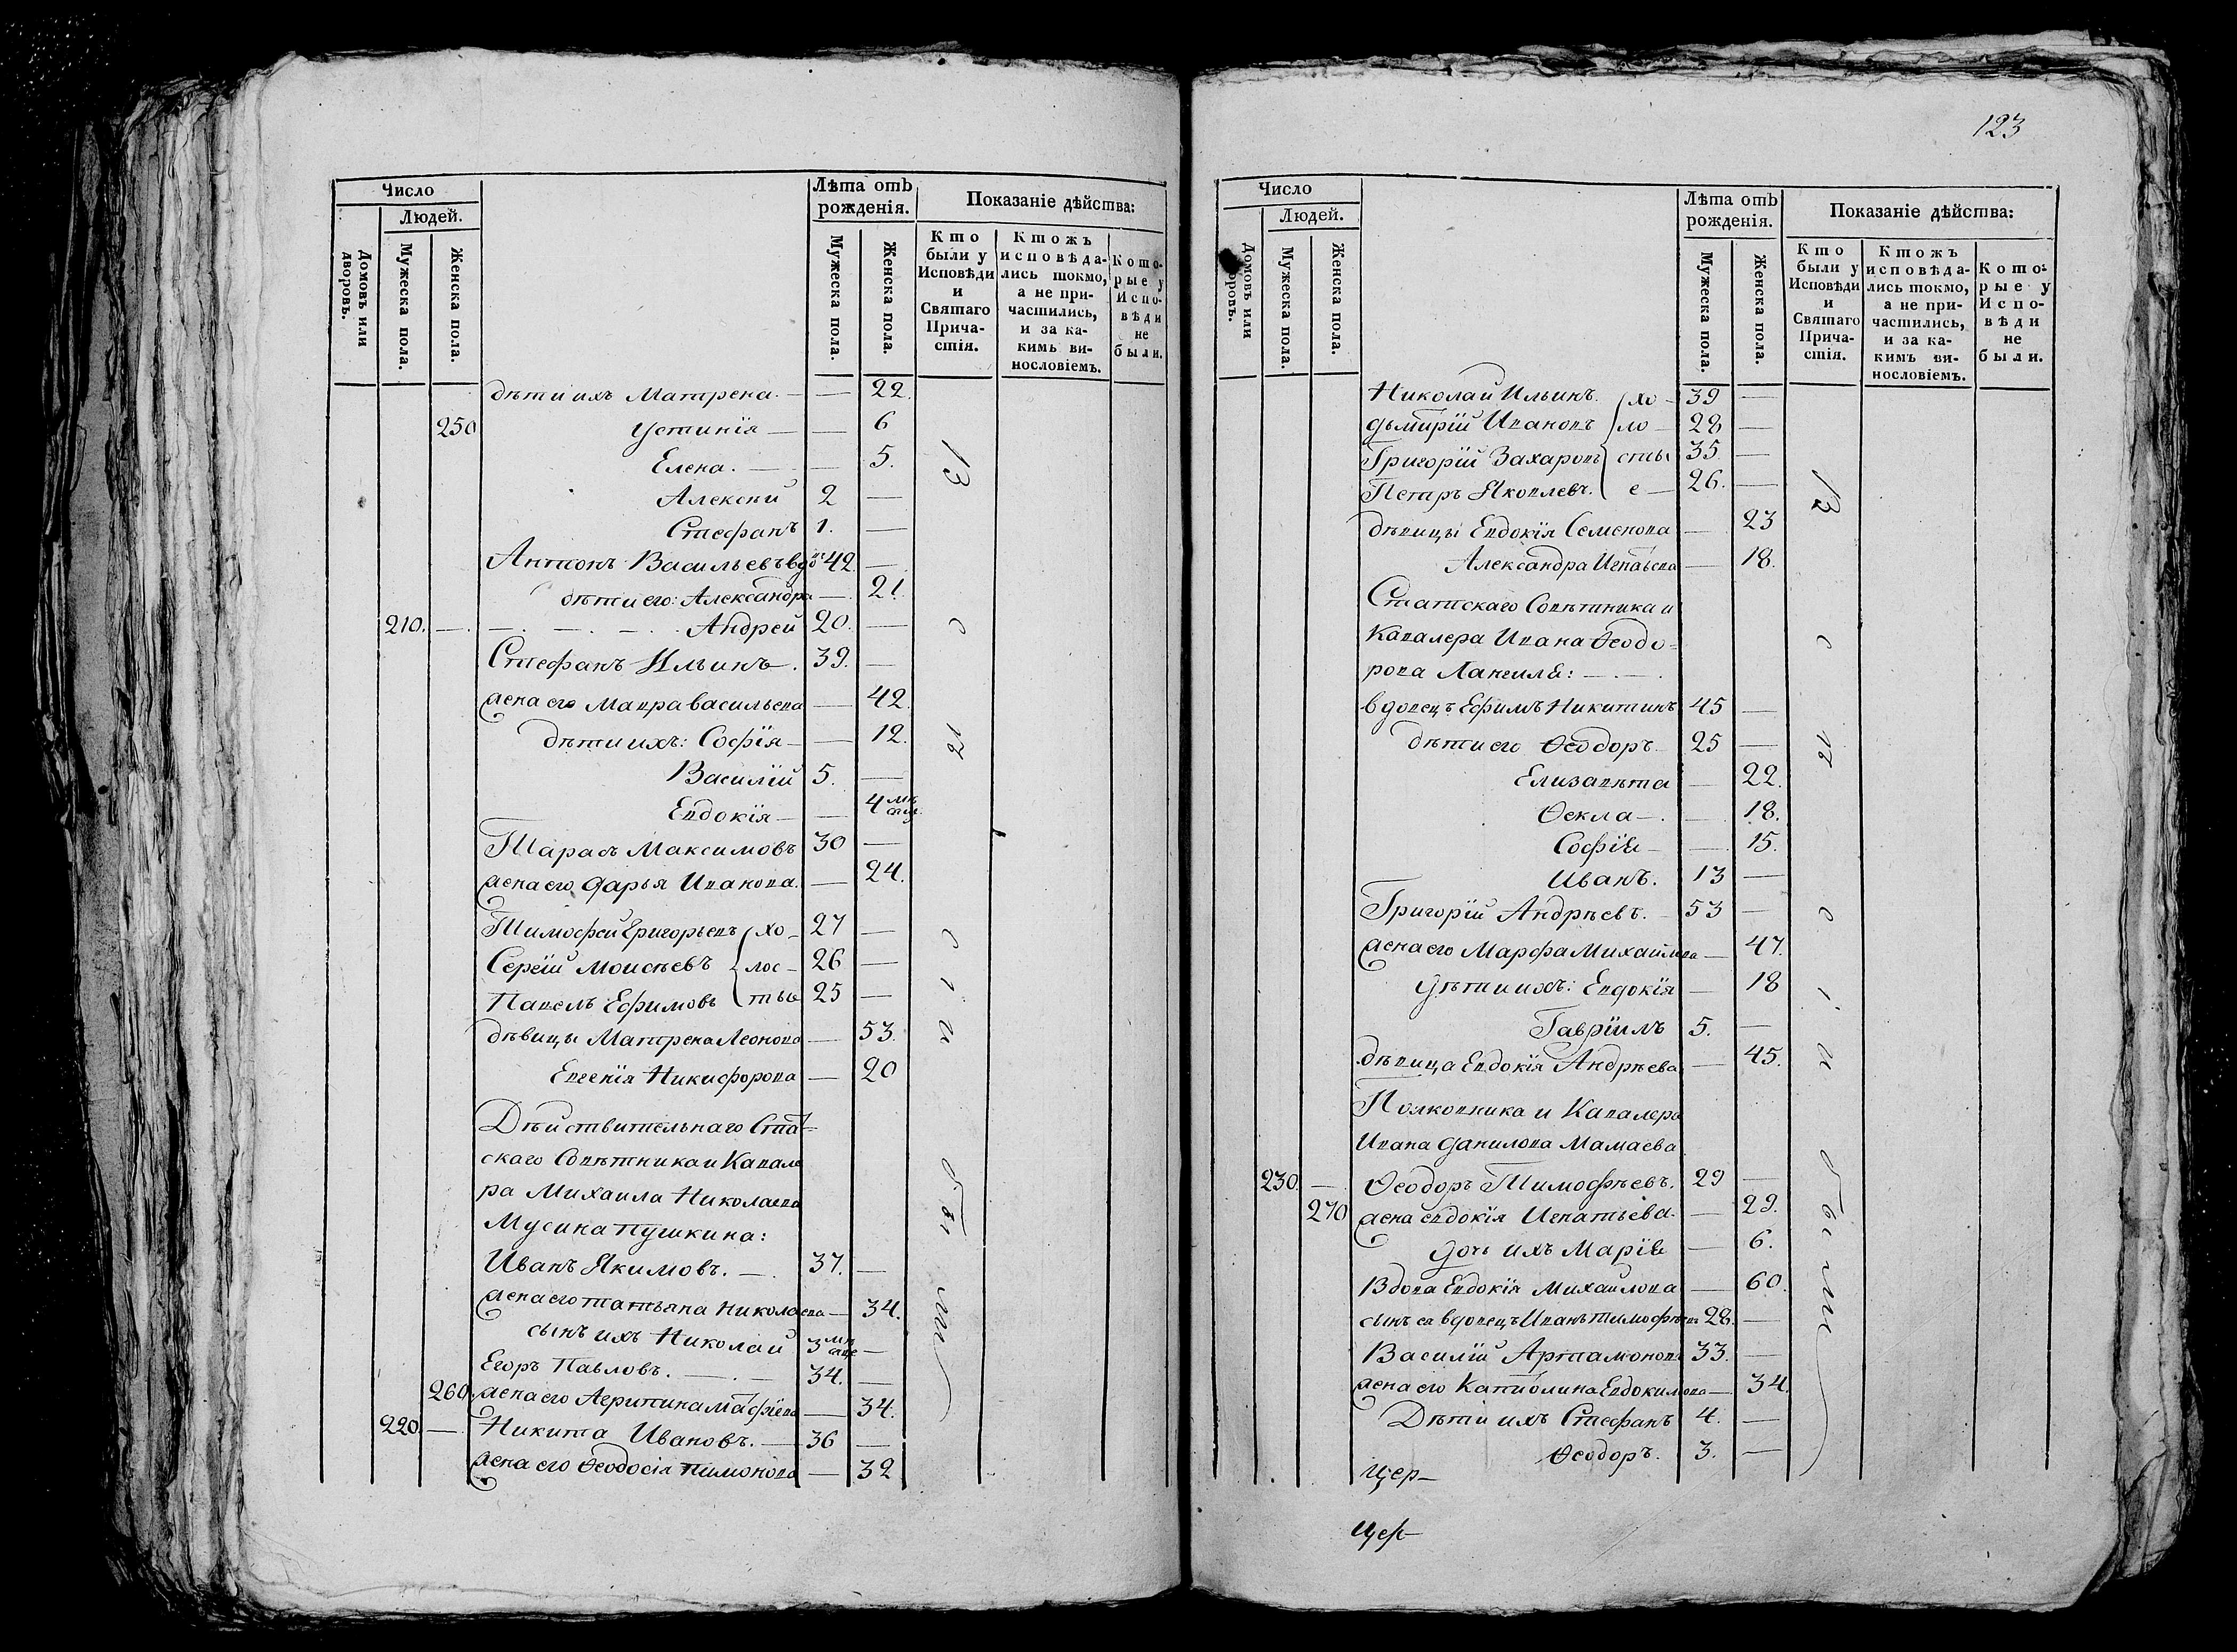 Число
Людей.
Домовъ или дворовъ.
Мужеска пола.
Женска пола.
Лѣта отъ рожденія.
Мужеска пола.
Женска пола.
Показаніе дѣйства:
Кто были у Исповѣди и Святаго Причастія.
Ктожъ исповѣдались токмо, а не причастились, и за какимъ винословіемъ.
Которые у Исповѣди не были.
дѣти ихъ Матрена. — — 22.
250 Устинія — — 6
Елена. — — 5.
Алексѣй 2 —
Стефанъ 1. —
Антонъ Васильевъ вдовъ 42 —
дѣти его: Александра — 21.
210. — Андрей 20. —
Стефанъ Ильинъ. 39. —
жена его Мавра Васильева — 42.
дѣти ихъ: Софія — — 12.
Василій 5. —
Евдокія — — 4 мѣсяц.
Тарасъ Максимовъ 30 —
жена его Дарья Иванова. — 24.
Тимофей Григорьевъ хо- 27 —
Сергій Моисѣевъ лос- 26 —
Павелъ Ефимовъ тые 25 —
дѣвицы Матрена Леонова — 53.
Евгенія Никифорова — 20
Дѣйствительнаго Стат-
скаго Совѣтника и Кавале
ра Михаила Николаева
Мусина Пушкина:
Иванъ Якимовъ. — 37. —
жена его Татьяна Николаева — 34.
сынъ ихъ Николай 3 мѣсяце —
Егоръ Павловъ. — 34. —
260. жена его Агрипина — 34.
220. — Никита Ивановъ. — 36 —
жена его Ѳеодосія Пимонова — 32
В
с
ѣ
с
і
и
бы
ли
123
Число
Людей.
Домовъ или дворовъ.
Мужеска пола.
Женска пола.
Лѣта отъ рожденія.
Мужеска пола.
Женска пола.
Показаніе дѣйства:
Кто были у Исповѣди и Святаго Причастія.
Ктожъ исповѣдались токмо, а не причастились, и за какимъ винословіемъ.
Которые у Исповѣди не были.
Николай Ильинъ. хо- 39 —
Дьмитрій Ивановъ ло- 28 —
Григорій Захаровъ сты 35 —
Петръ Яковлевъ. е — 26. —
дѣвицы Евдокія Семенова — 23
Александра Игнатьева — 18.
Статскаго Совѣтника и
Кавалера Ивана Ѳеодо-
рова Лангиля: —
вдовецъ Ефимъ Никитинъ 45 —
дѣти его Ѳеодоръ 25 —
Елизавѣта — 22.
Ѳекла — 18.
Софія — — 15.
Иванъ. 13 —
Григорій Андрѣевъ. 53 —
жена его Марфа Михайлова — 47.
Дѣти ихъ: Евдокія — 18
Гавріилъ 5. —
дѣвица Евдокія Андрѣева — 45.
Полковника и Кавалера
Ивана Данилова Мамаева
230. — Ѳеодоръ Тимофѣевъ. 29 —
270 жена Евдокія Игнатьева. — 29.
Дочь ихъ Марія — 6.
Вдова Евдокія Михайлова — 60.
сынъ ея вдовецъ Иванъ Тимофѣевъ 28. —
Василій Артамоновъ 33. —
жена его Капиолина Евдокимова — 34.
Дѣти ихъ Стефанъ 4. —
Ѳеодоръ. 3. —
Цер-
Цер-
В
с
ѣ
с
і
и
бы
ли